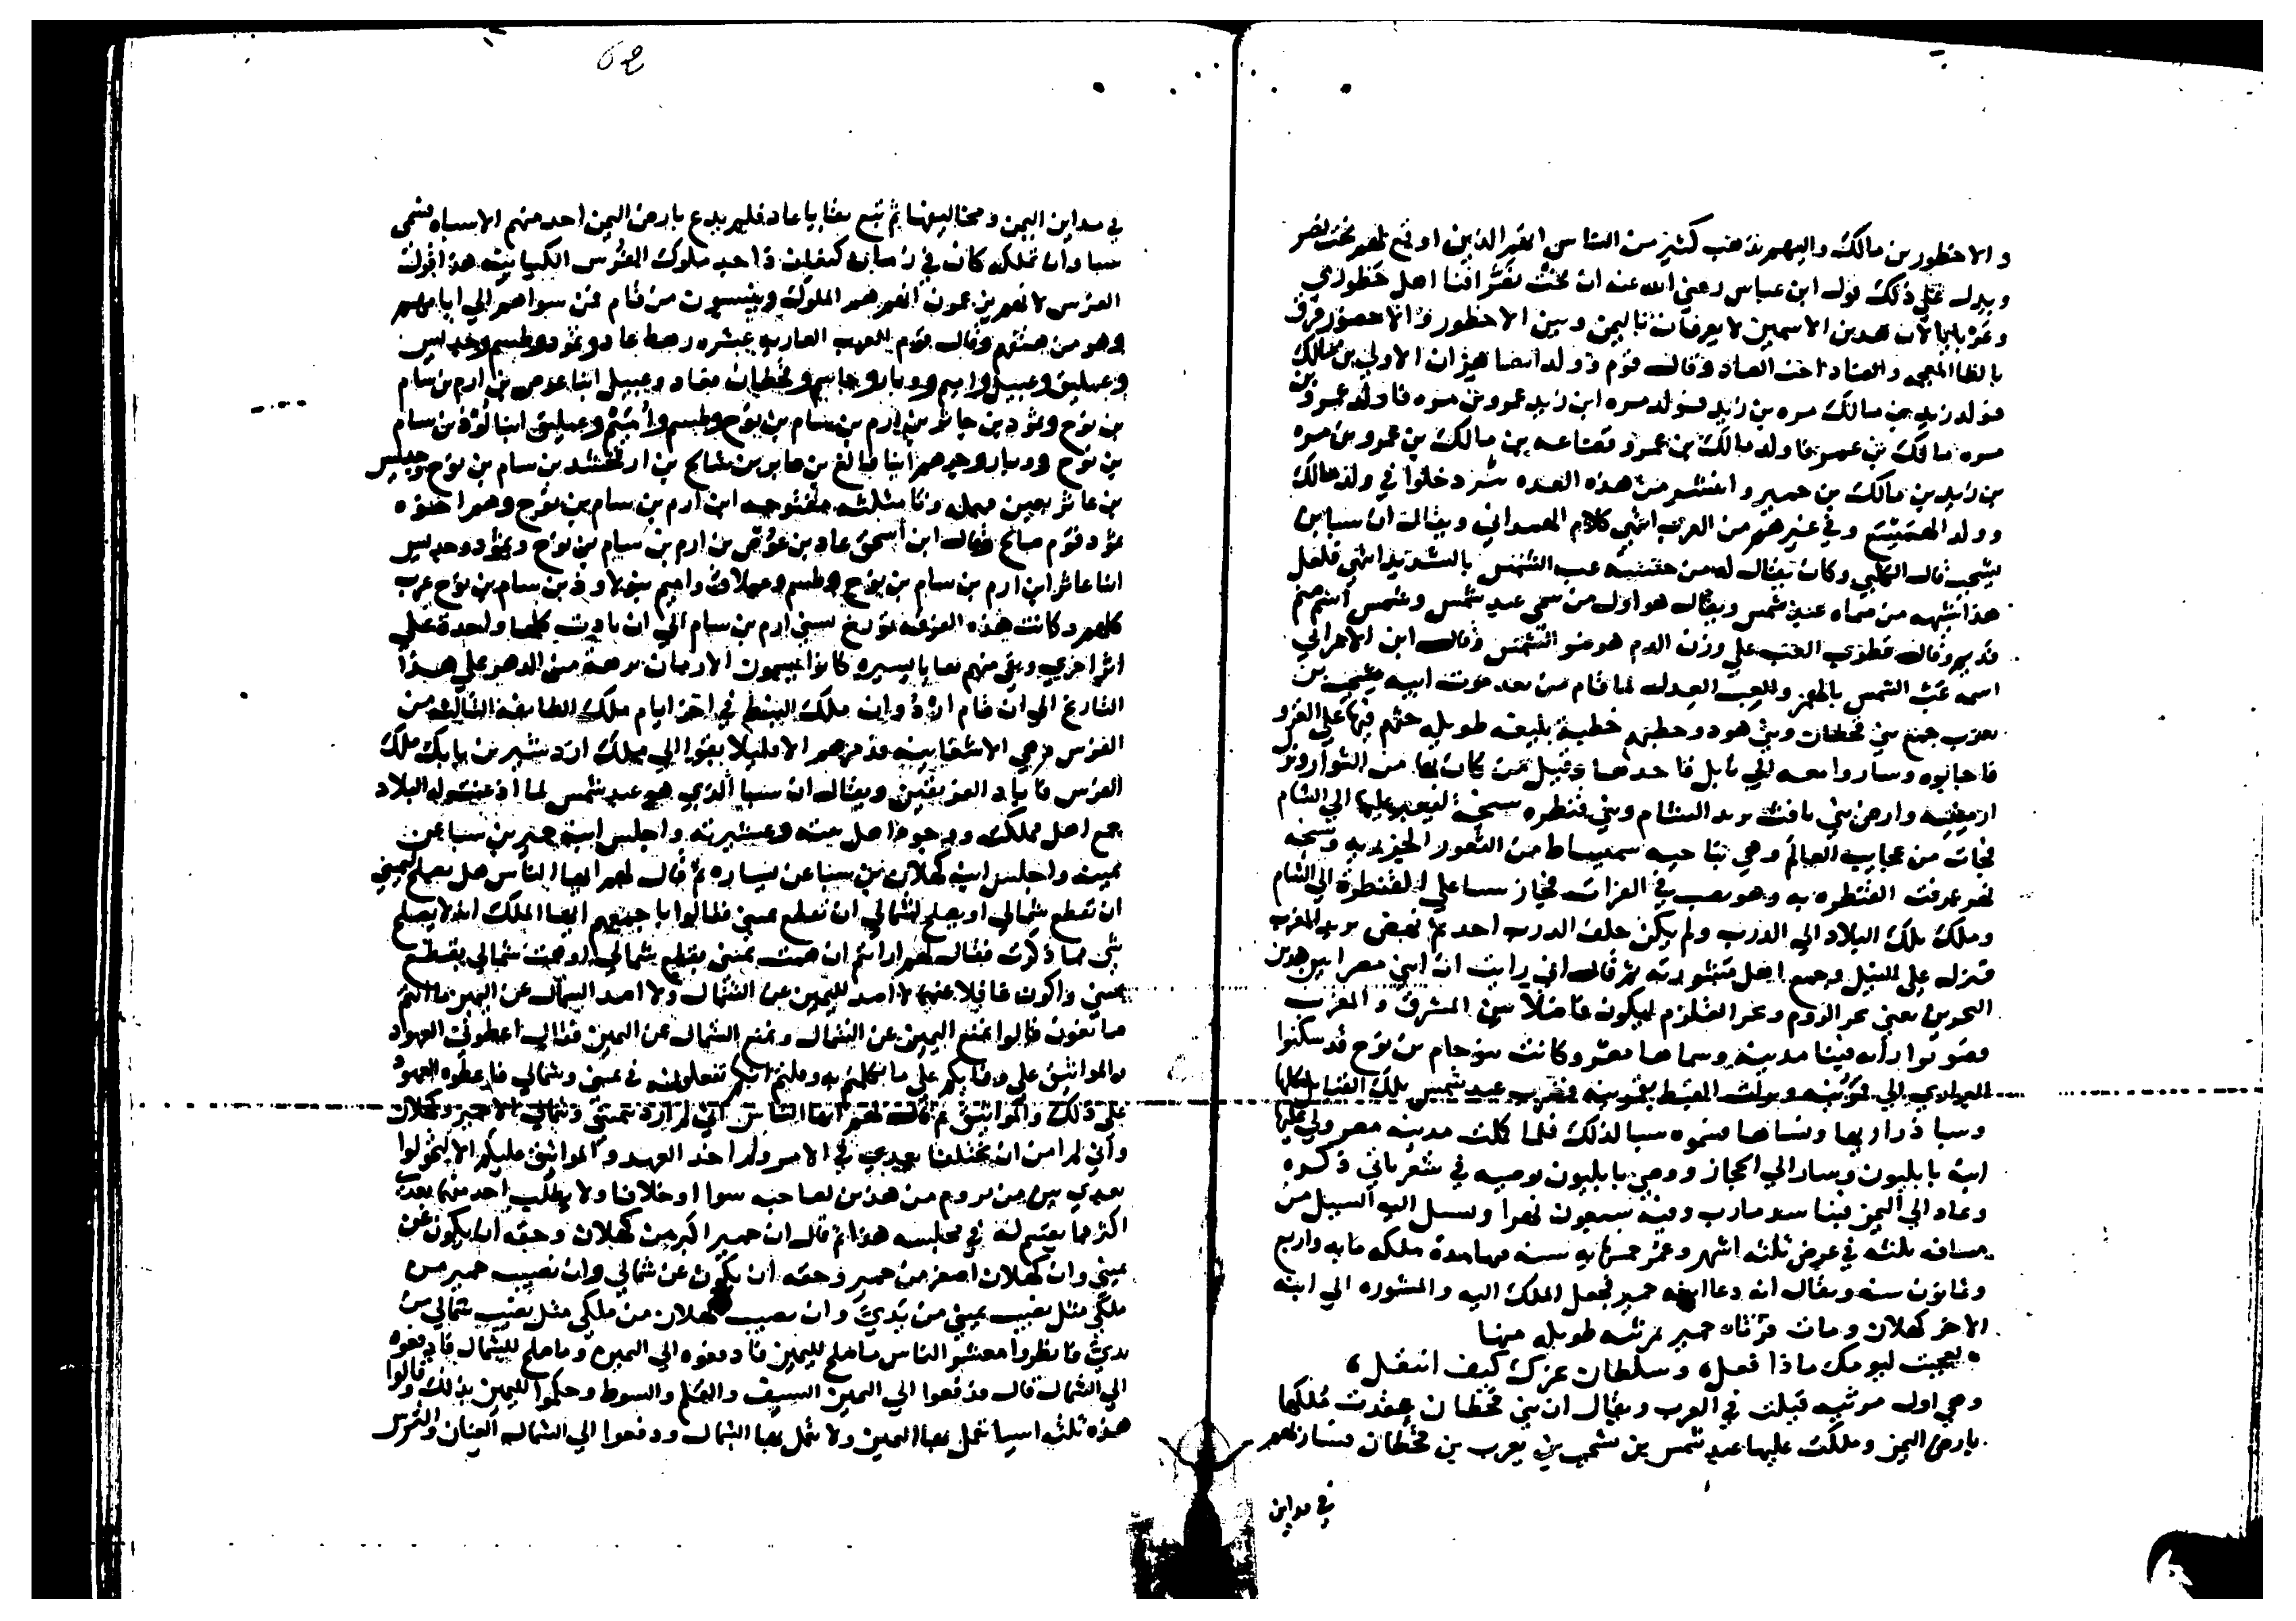 و الاخظور بن مالك واليهم يذهب كثير من الناس انهم الذين اوقع بهم بخت نصر
ويدل على ذلك قول ابن عباس رضي الله عنه ان بخت نصر انما اهل حظوري
وعربايا لان هذين الاسمين لا يعرفان باليمن وبين الاخظور والاحضور فرق
بالظا المعجمه والضاد اخت الصاد وقال قوم وولد ايضا الاولى بن مالك
فولد زيد بن مالك مره بن زيد فولد مره ابن زيد عمرو بن مره فاولد عمرو بن
مره مالك بن عمرو فاولد مالك بن عمرو قضاعه بن مالك بن عمرو بن مره
بن زيد بن مالك بن حمير وانتشر من هذه العده بشر دخلوا في ولد مالك
وولد الهميسع وفي غيرهم من العرب انتهى كلام الهمداني ويقال ان سبا بن
يشجب قال الكلبي وكان يقال له من حسنه عب الشمس بالتشديد انتهى فلعل
هذا اشبه من سماه عبد شمس ويقال هو اول من سمي عبد شمس وشمس اسم صنم
قديم وقال قطرب العب على وزن الدم هو ضو الشمس وقال ابن الاعرابي
اسمه عبء الشمس بالهمز والعب العدل لما قام من بعد موت ابيه يشجب بن
يعرب جمع بني قحطان وبني هود وخطبهم خطبة بليغه طويله حثهم فيها على الغزو
فاجابوه وساروا معه الي بابل فاخدها وقتل من كان بها من الثوار وبلغ
ارمينيه وارض بني يافث يريد الشام وبني قنطره سنجه ليعبر عليها الي الشام
فجات من عجايب العالم وهي بناحيه سميساط من الثغور الجزريه وسنجه
نهر عرفت القنطره به وهو يصب في الفرات فجاز سبا على القنطرة الي الشام
وملك تلك البلاد الي الدرب ولم يكن خلف الدرب احد ثم نهض يريد المغرب
فنزل على النيل وجمع اهل مشورته ثم قال اني رايت ان ابني مصرا بين هذين
البحرين يعني بحر الروم وبحر القلزم ليكون فاصلا بين المشرق والمغرب
فصوبوا رأيه فبنا مدينة وسماها مصر وكانت بنو حام بن نوح قد سكنوا
البوادي الي قوبيه وبولت القبط بجنوبيه فضرب عبد شمس تلك القبايل كلها
وسبا ذراريها ونساها فسموه سبا لذلك فلما كملت مدينه مصر ولي عليها
ابنه بابليون وسار الي الحجاز ووصى بابليون بوصيه في شعر ياتي ذكره
وعاد الي اليمن فبنا سد مارب وفيه سبعون نهرا ويسيل اليه السيل من
مسافه ثلثه في عرض ثلثه اشهر وعمر خمسمايه سنه منها مدة ملكه مايه واربع
وثمانون سنه ويقال انه دعا ابنه حمير فجعل الملك اليه والمشوره الي ابنه
الاخر كهلان ومات فرثاه حمير بمرثيه طويله منها
عجبت ليومك ماذا فعل وسلطان عزك كيف انتقل
وهي اول مرثيه قيلت في العرب ويقال ان بني قحطان عقدت ملكها
بارض اليمن وملكت عليها عبد شمس بن يشجب بن يعرب بن قحطان فسار بهم
في مداين
62
في مداين اليمن ومخاليفها ثم تبع بقايا عاد فلم يدع بارض اليمن احد منهم الا سباه فسمي
سبا وان تملكه كان في زمان كيقباد احد ملوك الفرس الكيانيه هذا قول
الفرس لانهم يزعمون انهم هم الملوك وينسبون من قام ممن سواهم الي ايامهم
وهو من حمقهم وقال قوم العرب العاربه عشره رهط عاد وثمود وطسم وجديس
وعمليق وعبيل واميم ووبار وجاسم وقحطان فعاد وعبيل ابنا عوص بن ارم بن سام
بن نوح وثمود بن جاثر بن ارم بن سام بن نوح وطسم واميم وعمليق ابنا لوذ بن سام
بن نوح ووبار وجرهم ابنا فالغ بن عابر بن شالخ بن ارفخشد بن سام بن نوح وجديس
بن عاثر بعين مهمله وثا مثلثه مفتوحه ابن ارم بن سام بن نوح وهم اخوه
ثمود قوم صالح وقال ابن اسحق عاد بن عوص بن ارم بن سام بن نوح وثمود وجديس
ابنا عاثر ابن ارم بن سام بن نوح وطسم وعملاق واميم بنو لاوذ بن سام بن نوح عرب
كلهم وكانت هذه الفرقه تورخ بسني ارم بن سام الي ان بادت كلها واحدة على
اثر اخري وبقي منهم بقايا يسيره كانوا يسمون الارمان برهة من الدهر على هذا
التاريخ الي ان قام اردوان ملك النبط في اخر ايام ملك الطايفه الثالثه من
الفرس وهي الاشغانيه فدمرهم الا قليلا بقوا الي ملك اردشير بن بابك ملك
الفرس فاباد الفريقين ويقال ان سبا الذي هو عبد شمس لما اذعنت له البلاد
جمع اهل مملكته ووجوه اهل بيته وعشيرته واجلس ابنه حمير بن سبا عن
يمينه واجلس ابنه كهلان بن سبا عن يساره ثم قال لهم ايها الناس هل يصلح ليميني
ان تقطع شمالي او يصلح لشمالي ان تقطع يميني فقالوا باجمعهم ايها الملك انه لا يصلح
شي مما ذكرت فقال لهم ارايتم ان همت يميني بقطع شمالي او همت شمالي بقطع
يميني واكون غافلا عنهما لا اصد اليمين عن الشمال ولا اصد الشمال عن اليمين ما انتم
صانعون قالوا نمنع اليمين عن الشمال ونمنع الشمال عن اليمين فقال اعطوني العهود
والمواثيق على وفايكم على ما تكلمتم به وقلتم انكم تفعلونه في يميني وشمالي فاعطوه العهود
على ذلك والمواثيق ثم قال لهم ايها الناس اني لم ارد بيميني وشمالي الا حمير وكهلان
واني لم امن ان يختلفا بعدي في الامر ولم اخذ العهد والمواثيق عليكم الا لتحولوا
بعدي بين من يروم من هذين لصاحبه سوا او خلافا ولا يطلب احد منهما بعدي
اكثر مما يقسم له في مجلسه هذا ثم قال ان حمير اكبر من كهلان وحقه ان يكون عن
يميني وان كهلان اصغر من حمير وحقه ان يكون عن شمالي وان نصيب حمير من
ملكي مثل نصيب يميني من بدني وان نصيب كهلان من ملكي مثل نصيب شمالي من
بدني فانظروا معشر الناس ما صلح لليمين فادفعوه الي اليمين وما صلح للشمال فادفعوه
الي الشمال قال فدفعوا الي اليمين السيف والقلم والسوط وحكموا لليمين بذلك وقالوا
هذه ثلثه اسيا تعمل بها اليمين ولا تعمل بها الشمال ودفعوا الي الشمال العنان والترس